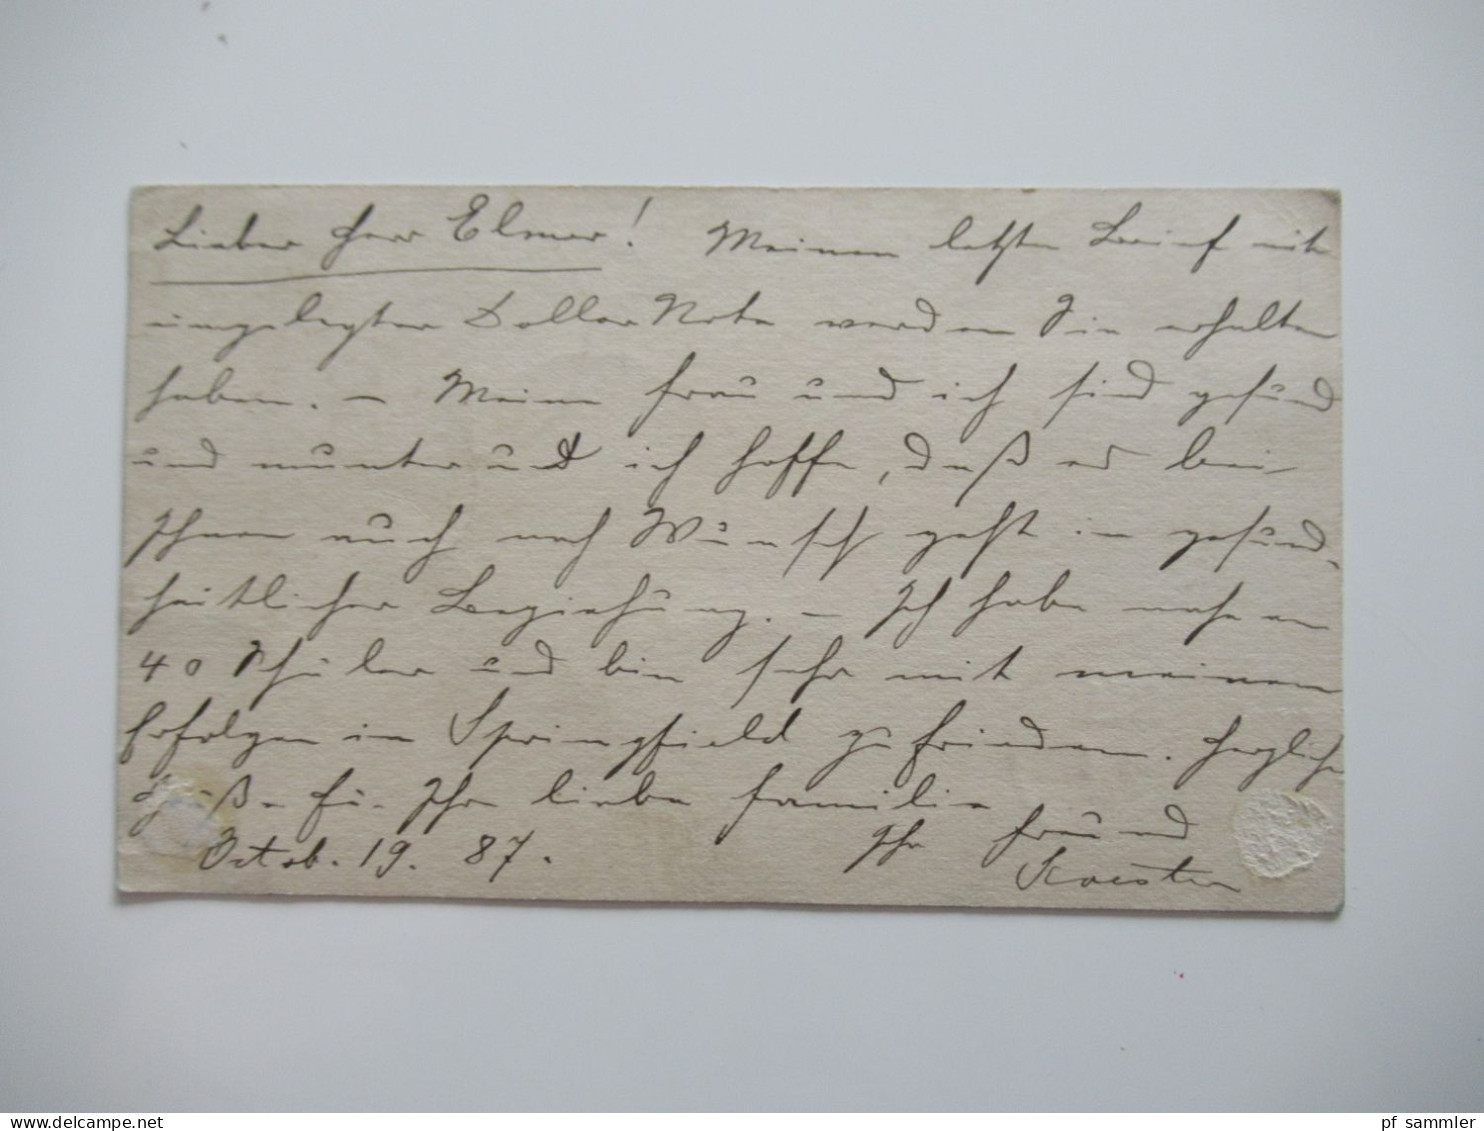 Lieber Herr Elmer! Meinen letzten Brief mit
eingelegter Dollar Note werden Sie erhalten
haben. – Meine Frau und ich sind gesund
und munter und ich hoffe, daß es bei
Ihnen auch nach Wunsch geht in gesund-
heitlicher Beziehung. – Ich habe nahezu
40 Schüler und bin sehr mit meinen
Erfolgen im Springfield zufrieden. Herzliche
Grüße für Ihre liebe Familie
Ihr Freund
Octob. 19. 87.
Koester
pf sammler